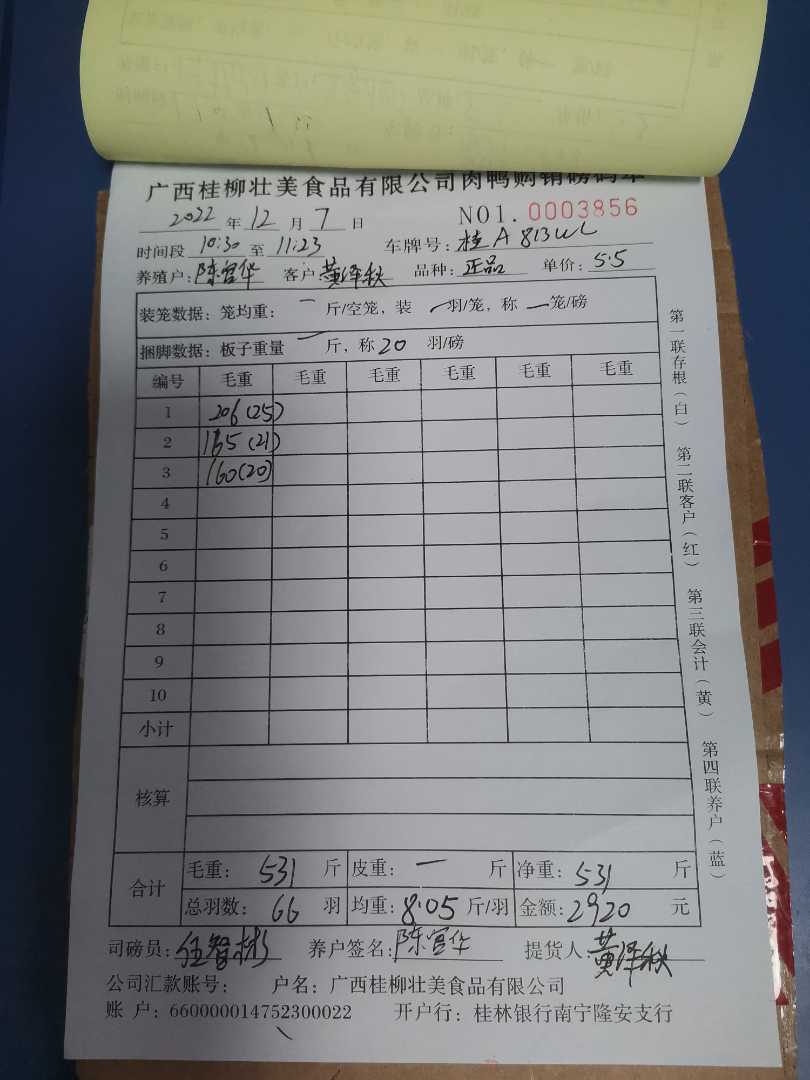 广西桂柳壮美食品有限公司肉鸭购销磅码单
2022 年 12 月 7 日 NO1. 0003856
时间段 10:30 至 11:23 车牌号: 桂A 813WL
养殖户: 陈宫华 客户: 黄泽秋 品种: 正品 单价: 5.5
装笼数据: 笼均重: 一 斤/空笼, 装 一 羽/笼, 称 一 笼/磅
捆脚数据: 板子重量 一 斤, 称 20 羽/磅
编号 毛重 毛重 毛重 毛重 毛重 毛重
1 206(25)
2 165(21)
3 160(20)
4
5
6
7
8
9
10
小计
核算
合计 毛重: 531 斤 皮重: 一 斤 净重: 531 斤
总羽数: 66 羽 均重: 8.05 斤/羽 金额: 2920 元
司磅员: 任智彬 养户签名: 陈宫华 提货人: 黄泽秋
公司汇款账号: 户名: 广西桂柳壮美食品有限公司
账 户: 660000014752300022 开户行: 桂林银行南宁隆安支行
第一联存根(白) 第二联客户(红) 第三联会计(黄) 第四联养户(蓝)